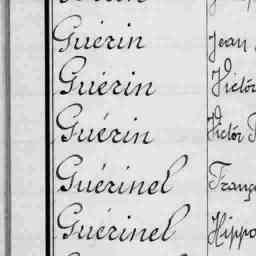 Guérin Jean
Guérin Victor
Guérin Victor
Guérinel
Guérinel